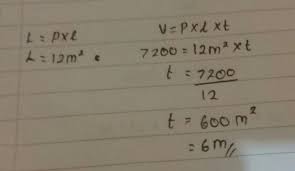 L = P x l
L = 12m²
V = P x l x t
7200 = 12m² x t
t = 7200
12
t = 600 m²
= 6m//